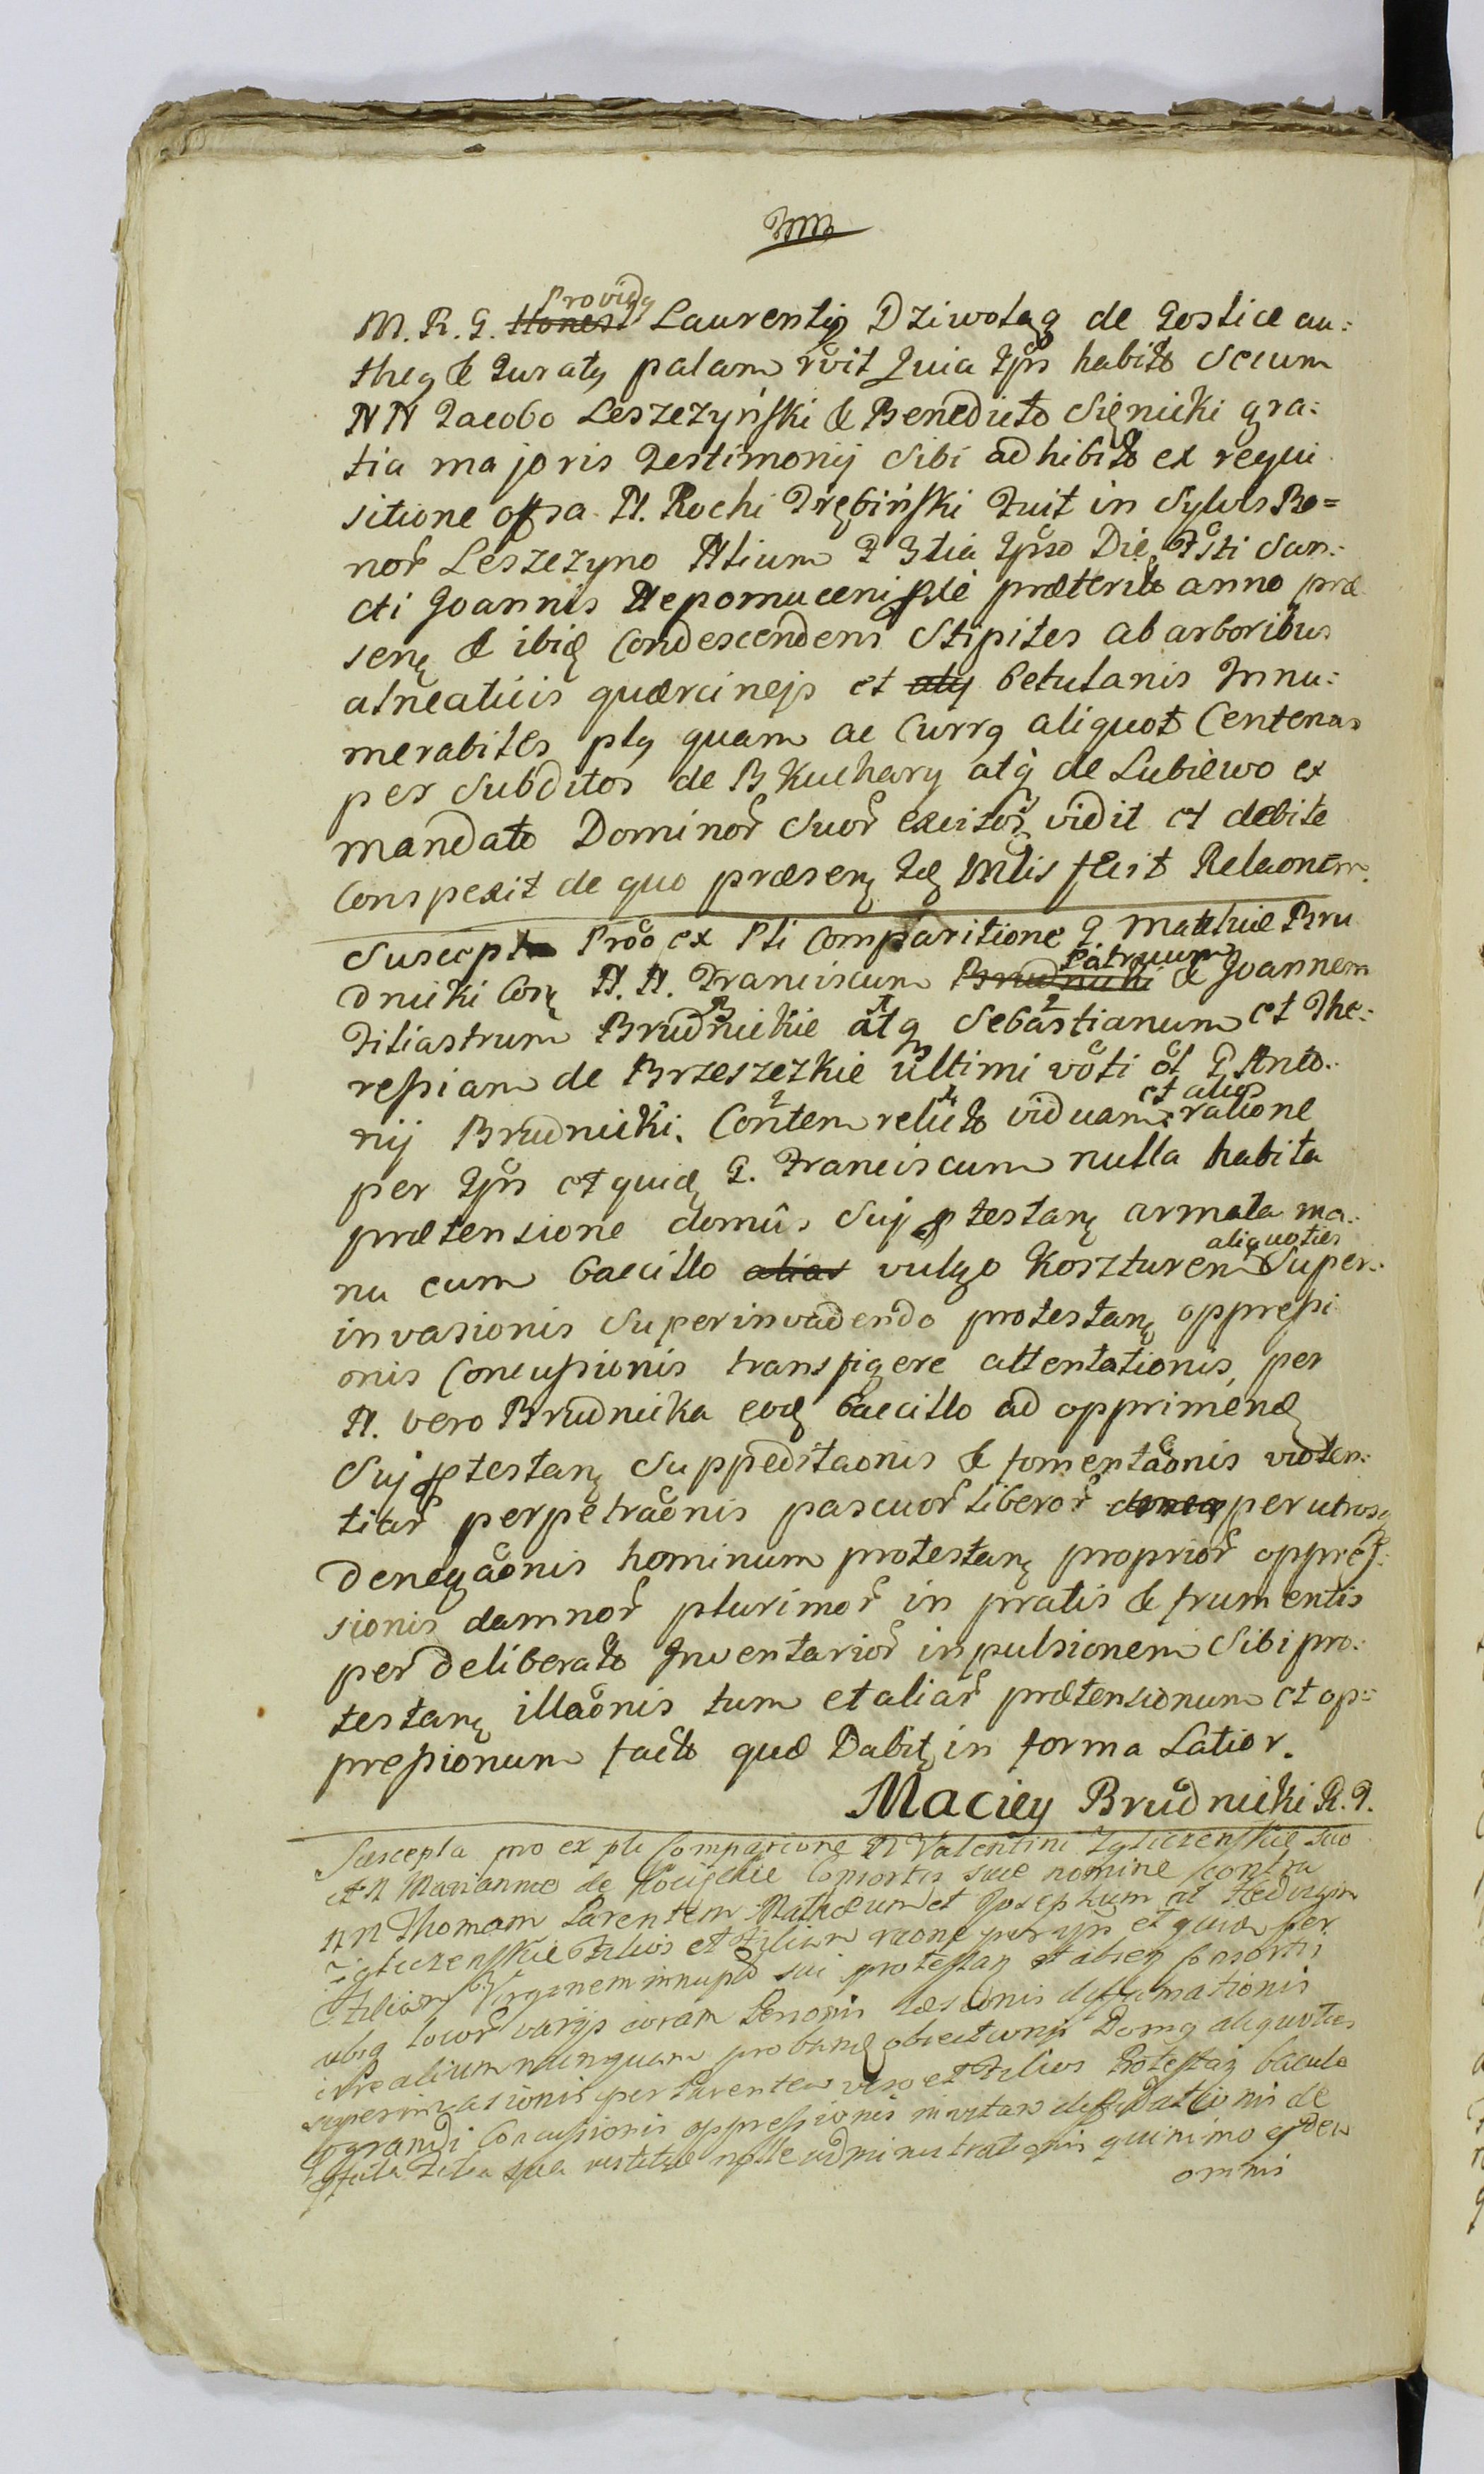 M. R. G. Honest Providq Laurentiq Dziwotaq de Gostice au:
theq & Juratq palam rvit Quia Ipis habito Secum
NN Jacobo Leszczyński & Benedicto Sięnicki gra:
tia majoris Testimonij Sibi adhibito ex requi
sitione ofsa N. Rochi Trębiński Fuit in Sylvis Bo=
nor Leszczyno Ntium F 3tia Ipso Die Fsti San:
cti Joannis Nepomuceni ple præterito anno præ
senę & ibię Condescendens Stipites ab arboribus
alneaticis quærcinejs et alij betulanis Innu:
merabiles plq quam ac Currq aliquot Centenas
per Subditos de B Kuchary atq de Lubiewo ex
mandato Dominor Suor excisor vidit et debite
Conspexit de quo præsenę Suę Mlis fecit Relaonem.
Suscepta Proo ex Pli Comparitione G Mathiæ Bru
dnicki Conę N. N. Franciscum Brudnicki Patruum & Joannem
Filiastrum Brudnickie atq Sebastianum et The:
resiam de Brzeszczkie ultimi voti ol G Anto:
nij Brudnicki. Contem relicto viduam et alios ratione
per Ipis et quię G. Franciscum nulla habita
prætensione domûs Suj ptestanę armata ma:
nu cum baccillo alias vulgo Koszturem aliquoties Super:
invasionis Superinvadendo protestanę oppressi
onis Concussionis transfigere attentationis, per
N. vero Brudnicka eoę baccillo ad opprimenę
Suj ptestanę Suppeditaonis & fomentaonis violen:
tiar perpetraonis pascuor liberor per utrosq
denegaonis hominum protestanę proprior oppres:
sionis damnor plurimor in pratis & frumentis
per deliberato Inventarior inpulsionem Sibi pro:
testanę illaonis tum et aliar prætensionum et op=
pressionum facto quæ Dabitę in forma Latior.
Maciey Brudnicki R. P.
Suscepta pro ex pli Comparione N Valentini Zgliczenskie suo
et N Mariannæ de Kocięckie Consortis suæ nomine contra
NN Thomam Parentem Mathæum et Josephum ac Hedvigim
Zgliczenskie Filios et Filiam raone per ipis et quidem per
Filiam Virginem innuptā sui protestanę et absenę Consortis
ubiq locor varijs coram Personis læsionis diffamationis
irrealium nunquam probanę obiectionis Domq aliquoties
superinvasionis per Parentem vero et Filios Protestanę baculo
grandi Concussionis oppressionis invitan diffidationis de
Filia sua nolle administrationis quinimo ejdem
omni